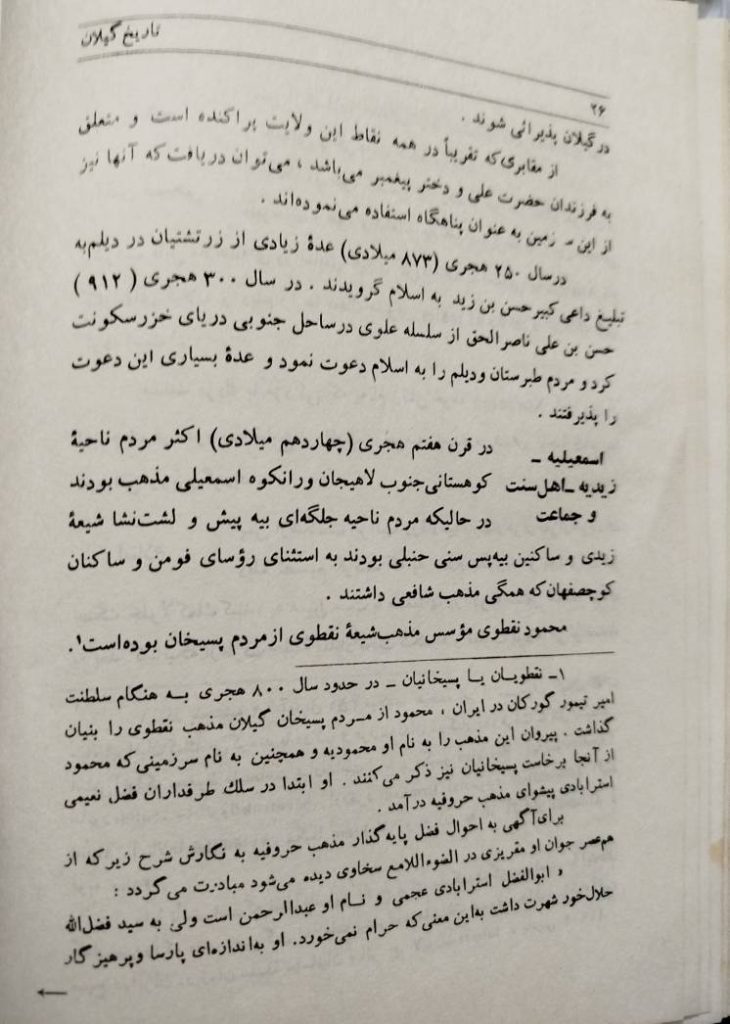 تاریخ گیلان
۲۶
در گیلان پذیرائی شوند .
از مقابری‌که تقریباً در همه نقاط این ولایت پراکنده است و متعلق
به فرزندان حضرت علی و دختر پیغمبر می‌باشد ، می‌توان دریافت‌که آنها نیز
از این سـ زمین به عنوان پناهگاه استفاده می‌نموده‌اند .
درسال ۲۵۰ هجری (۸۷۳ میلادی) عدهٔ زیادی از زرتشتیان در دیلم‌به
تبلیغ داعی کبیر حسن بن زید به اسلام گرویدند . در سال ۳۰۰ هجری ( ۹۱۲ )
حسن بن علی ناصرالحق از سلسله علوی درساحل جنوبی دریای خزرسکونت
کرد و مردم طبرستان ودیلم را به اسلام دعوت نمود و عدهٔ بسیاری این دعوت
را پذیرفتند .
اسمعیلیه ـ
زیدیه ـ اهل‌سنت
و جماعت
در قرن هفتم هجری (چهاردهم میلادی) اکثر مردم ناحیهٔ
کوهستانی‌جنوب لاهیجان ورانکوه اسمعیلی مذهب بودند
در حالیکه مردم ناحیه جلگه‌ای بیه پیش و لشت‌نشا شیعهٔ
زیدی و ساکنین بیه‌پس سنی حنبلی بودند به استثنای رؤسای فومن و ساکنان
کوچصفهان‌که همگی مذهب شافعی داشتند .
محمود نقطوی مؤسس مذهب‌شیعهٔ نقطوی ازمردم پسیخان بوده‌است۱.
۱ـ نقطویـان یـا پسیخانیان ـ در حدود سال ۸۰۰ هجری بـه هنگام سلطنت
امیر تیمور گورکان در ایران ، محمود از مـردم پسیخان گیلان مذهب نقطوی را بنیان
گذاشت . پیروان این مذهب را به نام او محمودیه و همچنین به نام سرزمینی‌که محمود
از آنجا برخاست پسیخانیان نیز ذکر می‌کنند . او ابتدا در سلك طرفداران فضل نعیمی
استرابادی پیشوای مذهب حروفیه درآمد .
برای‌آگهی به احوال فضل پایه‌گذار مذهب حروفیه به نگارش شرح زیر که از
هم‌عصر جوان او مقریزی در الضوءاللامع سخاوی دیده می‌شود مبادرت می‌گردد :
« ابوالفضل استرابادی عجمی و نـام او عبدالرحمن است ولی به سید فضل‌الله
حلال‌خور شهرت داشت به‌این معنی‌که حرام نمی‌خورد. او به‌اندازه‌ای پارسا و پرهیزگار
←